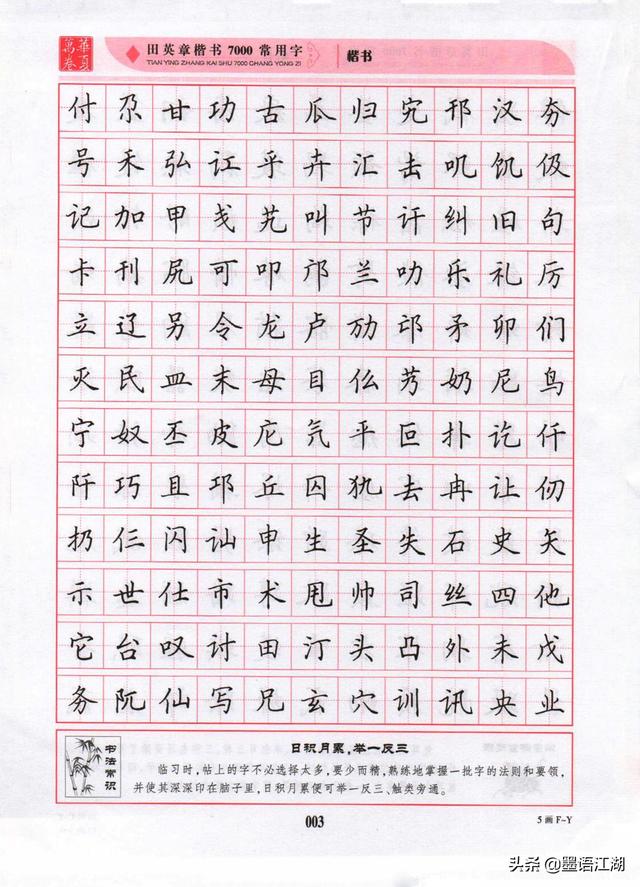 華夏
萬卷
田英章楷书 7000 常用字
TIAN YING ZHANG KAI SHU 7000 CHANG YONG ZI
楷书
付尕甘功古瓜归宄邗汉夯
号禾弘讧乎卉汇击叽饥伋
记加甲戋艽叫节讦纠旧句
卡刊尻可叩邝兰叻乐礼厉
立辽另令龙卢劢邙矛卯们
灭民皿末母目仫艿奶尼鸟
宁奴丕皮庀氕平叵扑讫仟
阡巧且邛丘囚犰去冉让仞
扔仨闪讪申生圣失石史矢
示世仕市术甩帅司丝四他
它台叹讨田汀头凸外未戊
务阢仙写兄玄穴训讯央业
书法常识
日积月累，举一反三
临习时，帖上的字不必选择太多，要少而精，熟练地掌握一批字的法则和要领，
并使其深深印在脑子里，日积月累便可举一反三、触类旁通。
003
5画F~Y
头条 @墨语江湖